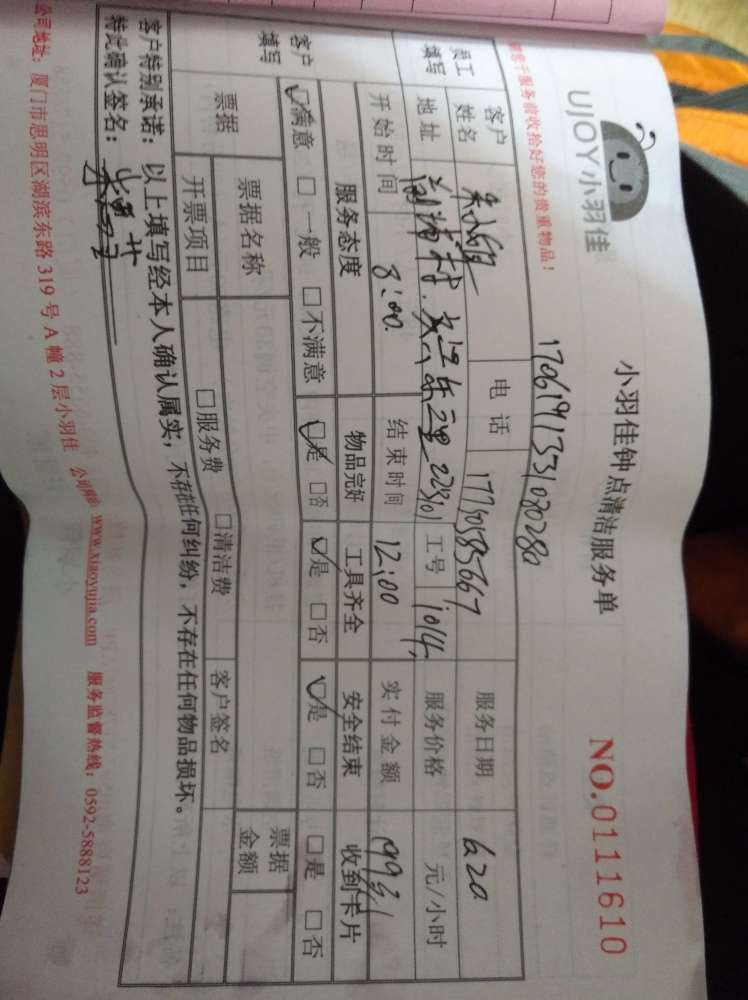 UJOY小羽佳
小羽佳钟点清洁服务单
NO.0111610
请您于服务前收拾好您的贵重物品!
1706191331030280
员工填写
客户姓名
电话 17750585667
服务日期 620
地址
工号 1014
服务价格 元/小时
开始时间 8:00
结束时间 12:00
实付金额
客户填写
服务态度 物品完好 工具齐全 安全结束 收到卡片
☑满意 □一般 □不满意 ☑是 □否 ☑是 □否 ☑是 □否 □是 □否
票据
票据名称
票据金额
开票项目 □服务费 □清洁费 客户签名
客户特别承诺:以上填写经本人确认属实,不存在任何纠纷,不存在任何物品损坏。
特此确认签名:
公司地址:厦门市思明区湖滨东路 319 号 A 幢 2 层小羽佳 公司网址:www.xiaoyujia.com 服务监督热线:0592-5888123